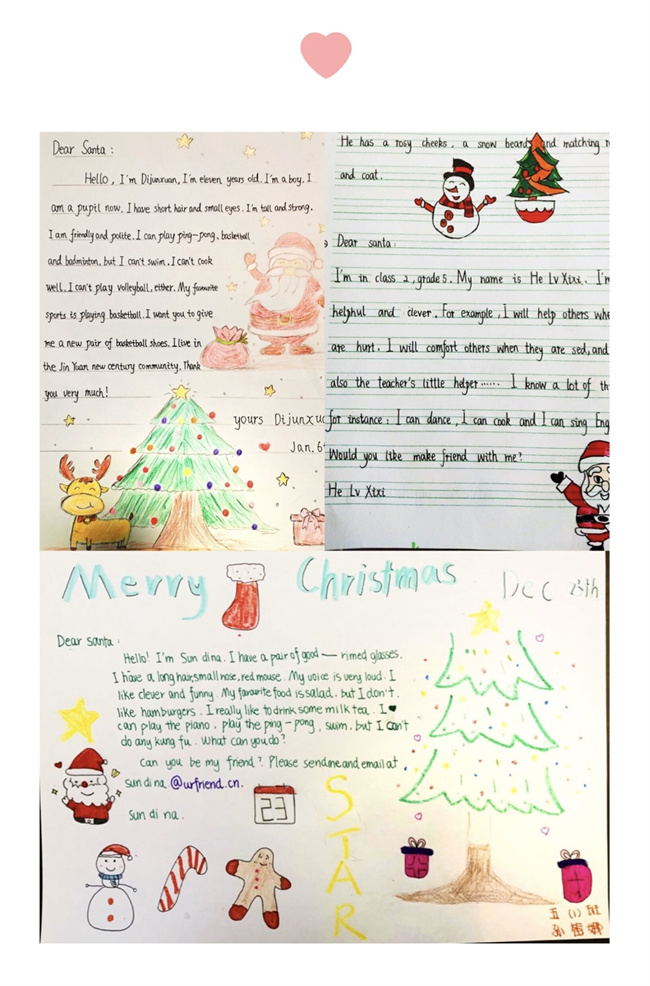 Dear Santa :
Hello, I'm Dijunxuan, I'm eleven years old. I'm a boy. I
am a pupil now. I have short hair and small eyes. I'm tall and strong.
I am friendly and polite. I can play ping-pong, basketball
and badminton, but I can't swim. I can't cook
well. I can't play volleyball, either. My favourite
sports is playing basketball. I want you to give
me a new pair of basketball shoes. I live in
the Jin Yuan new century community. Thank
you very much!
yours Dijunxu
Jan. 6
He has a rosy cheeks, a snow beard and matching
and coat.
Dear santa.
I'm in class 2, grade 5. My name is He Lv Xixi. I'm
helpful and clever. For example, I will help others whe
are hurt. I will comfort others when they are sed, and
also the teacher's little helper...... I know a lot of th
for instance : I can dance, I can cook and I can sing Eng
Would you like make friend with me?
He Lv Xixi
Merry Christmas Dec 25th
Dear santa.
Hello! I'm Sun dina. I have a pair of good — rimed glasses.
I have a long hair, small nose, red mouse. My voice is very loud. I
like clever and funny. My favarite food is salad. but I don't.
like hamburgers. I really like to drink some milk tea. I
can play the piano, play the ping-pong, swim. but I can't
do any kung fu. What can you do?
Can you be my friend? Please send me and email at
sun di na @urfriend.cn.
sun di na.
23
STAR
五（1）班